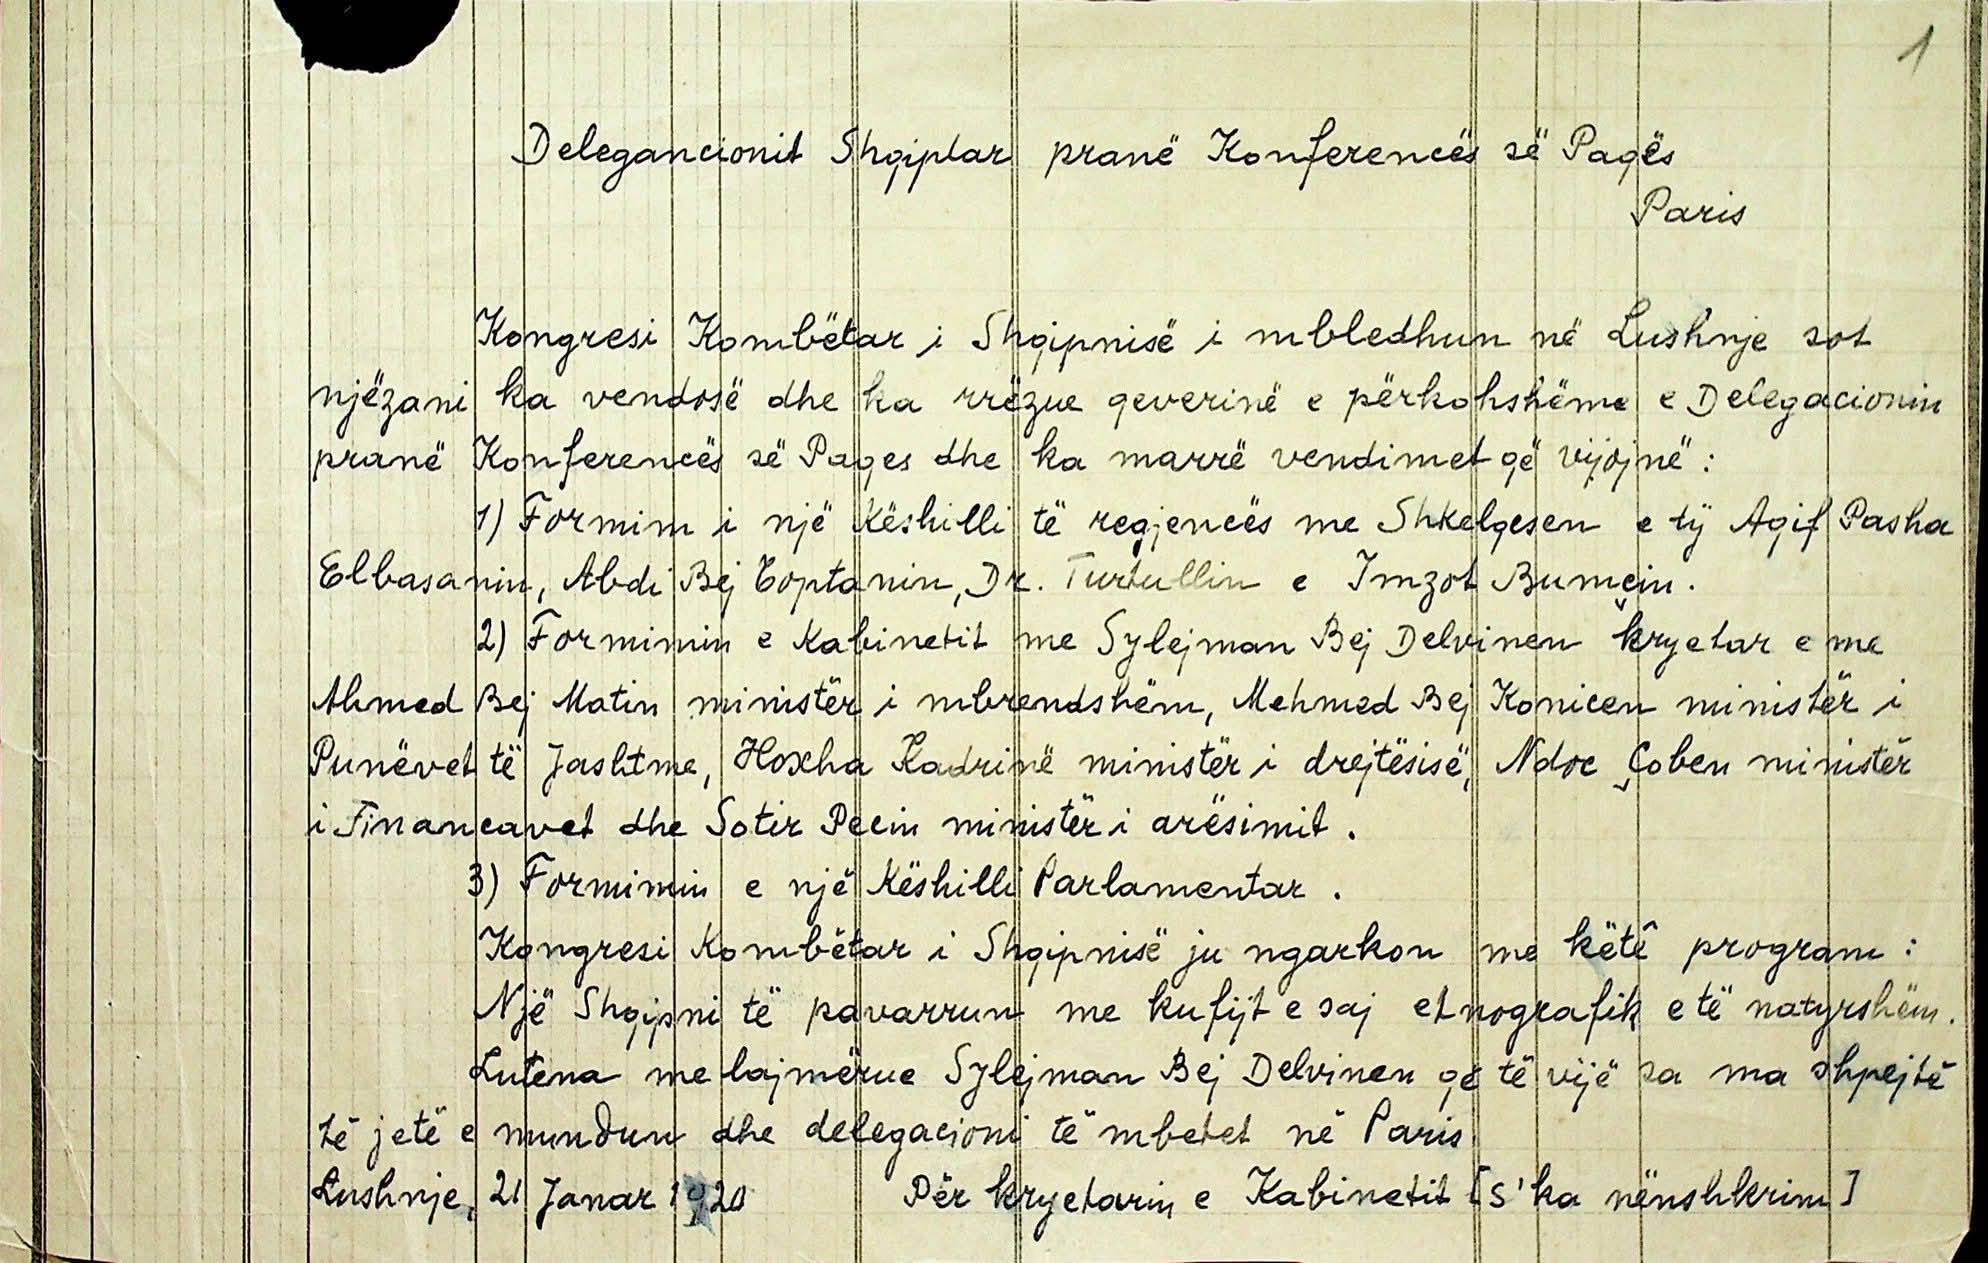 1
Delegancionit Shqiptar pranë Konferencës së Paqës
Paris
Kongresi Kombëtar i Shqipnisë i mbledhun në Lushnje sot
njëzani ka vendosë dhe ka rrëzue qeverinë e përkohshëme e Delegacionin
pranë Konferencës së Paqes dhe ka marrë vendimet që vijojnë :
1) Formim i një Këshilli të regjencës me Shkelqesen e tÿ Aqif Pasha
Elbasanin, Abdi Bej Toptanin, Dr. Turtullin e Imzot Bumçin.
2) Formimin e Kabinetit me Sylejman Bej Delvinen kryetar e me
Ahmed Bej Matin ministër i mbrendshëm, Mehmed Bej Konicen ministër i
Punëvet të Jashtme, Hoxha Kadrinë ministër i drejtësisë, Ndoc Çoben ministër
i Financavet dhe Sotir Pecin ministër i arësimit.
3) Formimin e një Këshilli Parlamentar.
Kongresi Kombëtar i Shqipnisë ju ngarkon me këtê program :
Një Shqipni të pavarrun me kufijt e saj etnografik e të natyrshëm.
Lutena me lajmërue Sylejman Bej Delvinen që të vijë sa ma shpejtë
të jetë e mundun dhe delegacioni të mbetet në Paris.
Lushnje, 21 Janar 1920 Për kryetarin e Kabinetit [S'ka nënshkrim]